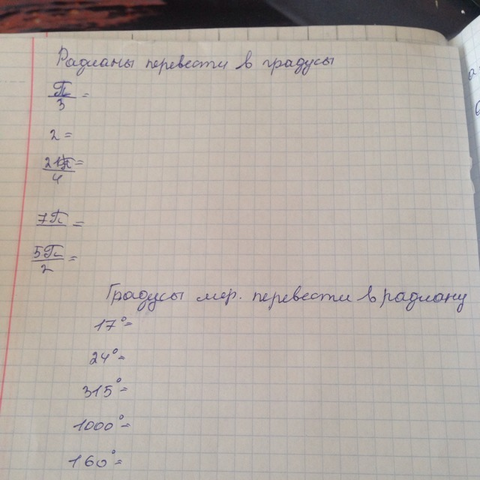 Радианы перевести в градусы
π/3 =
2 =
21π/4 =
7π =
5π/2 =
Градусы мер. перевести в радиану
17°=
24°=
315°=
1000°=
160°=